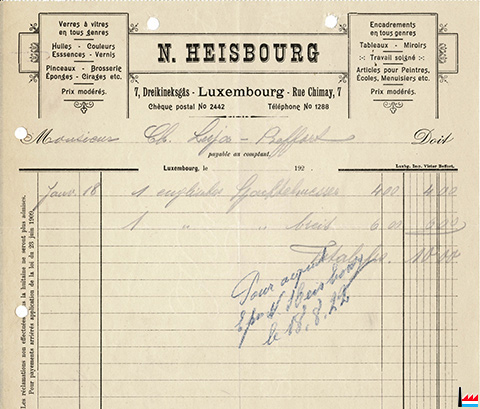 Verres à vitres
en tous genres
Huiles - Couleurs
Esssences - Vernis
Pinceaux - Brosserie
Éponges - Cirages etc.
Prix modérés.
N. HEISBOURG
7, Dreikineksgås - Luxembourg - Rue Chimay, 7
Chèque postal No 2442 Téléphone No 1288
Encadrements
en tous genres
Tableaux - Miroirs
Travail soigné
Articles pour Peintres,
Écoles, Menuisiers etc.
Prix modérés.
Monsieur Ch. - Buffort Doit
payable au comptant.
Luxbg. Imp. Victor Buffort.
Luxembourg, le 192
Janv. 18 1 englisches 4.00 4.00
1 " " breit 6.00 6.00
Total frs. 10.00
Pour acquit
Heisbourg
le 18.8.22
Les réclamations non effectuées dans la huitaine ne seront plus admises.
Pour payements arriérés application de la loi du 23 juin 1909.